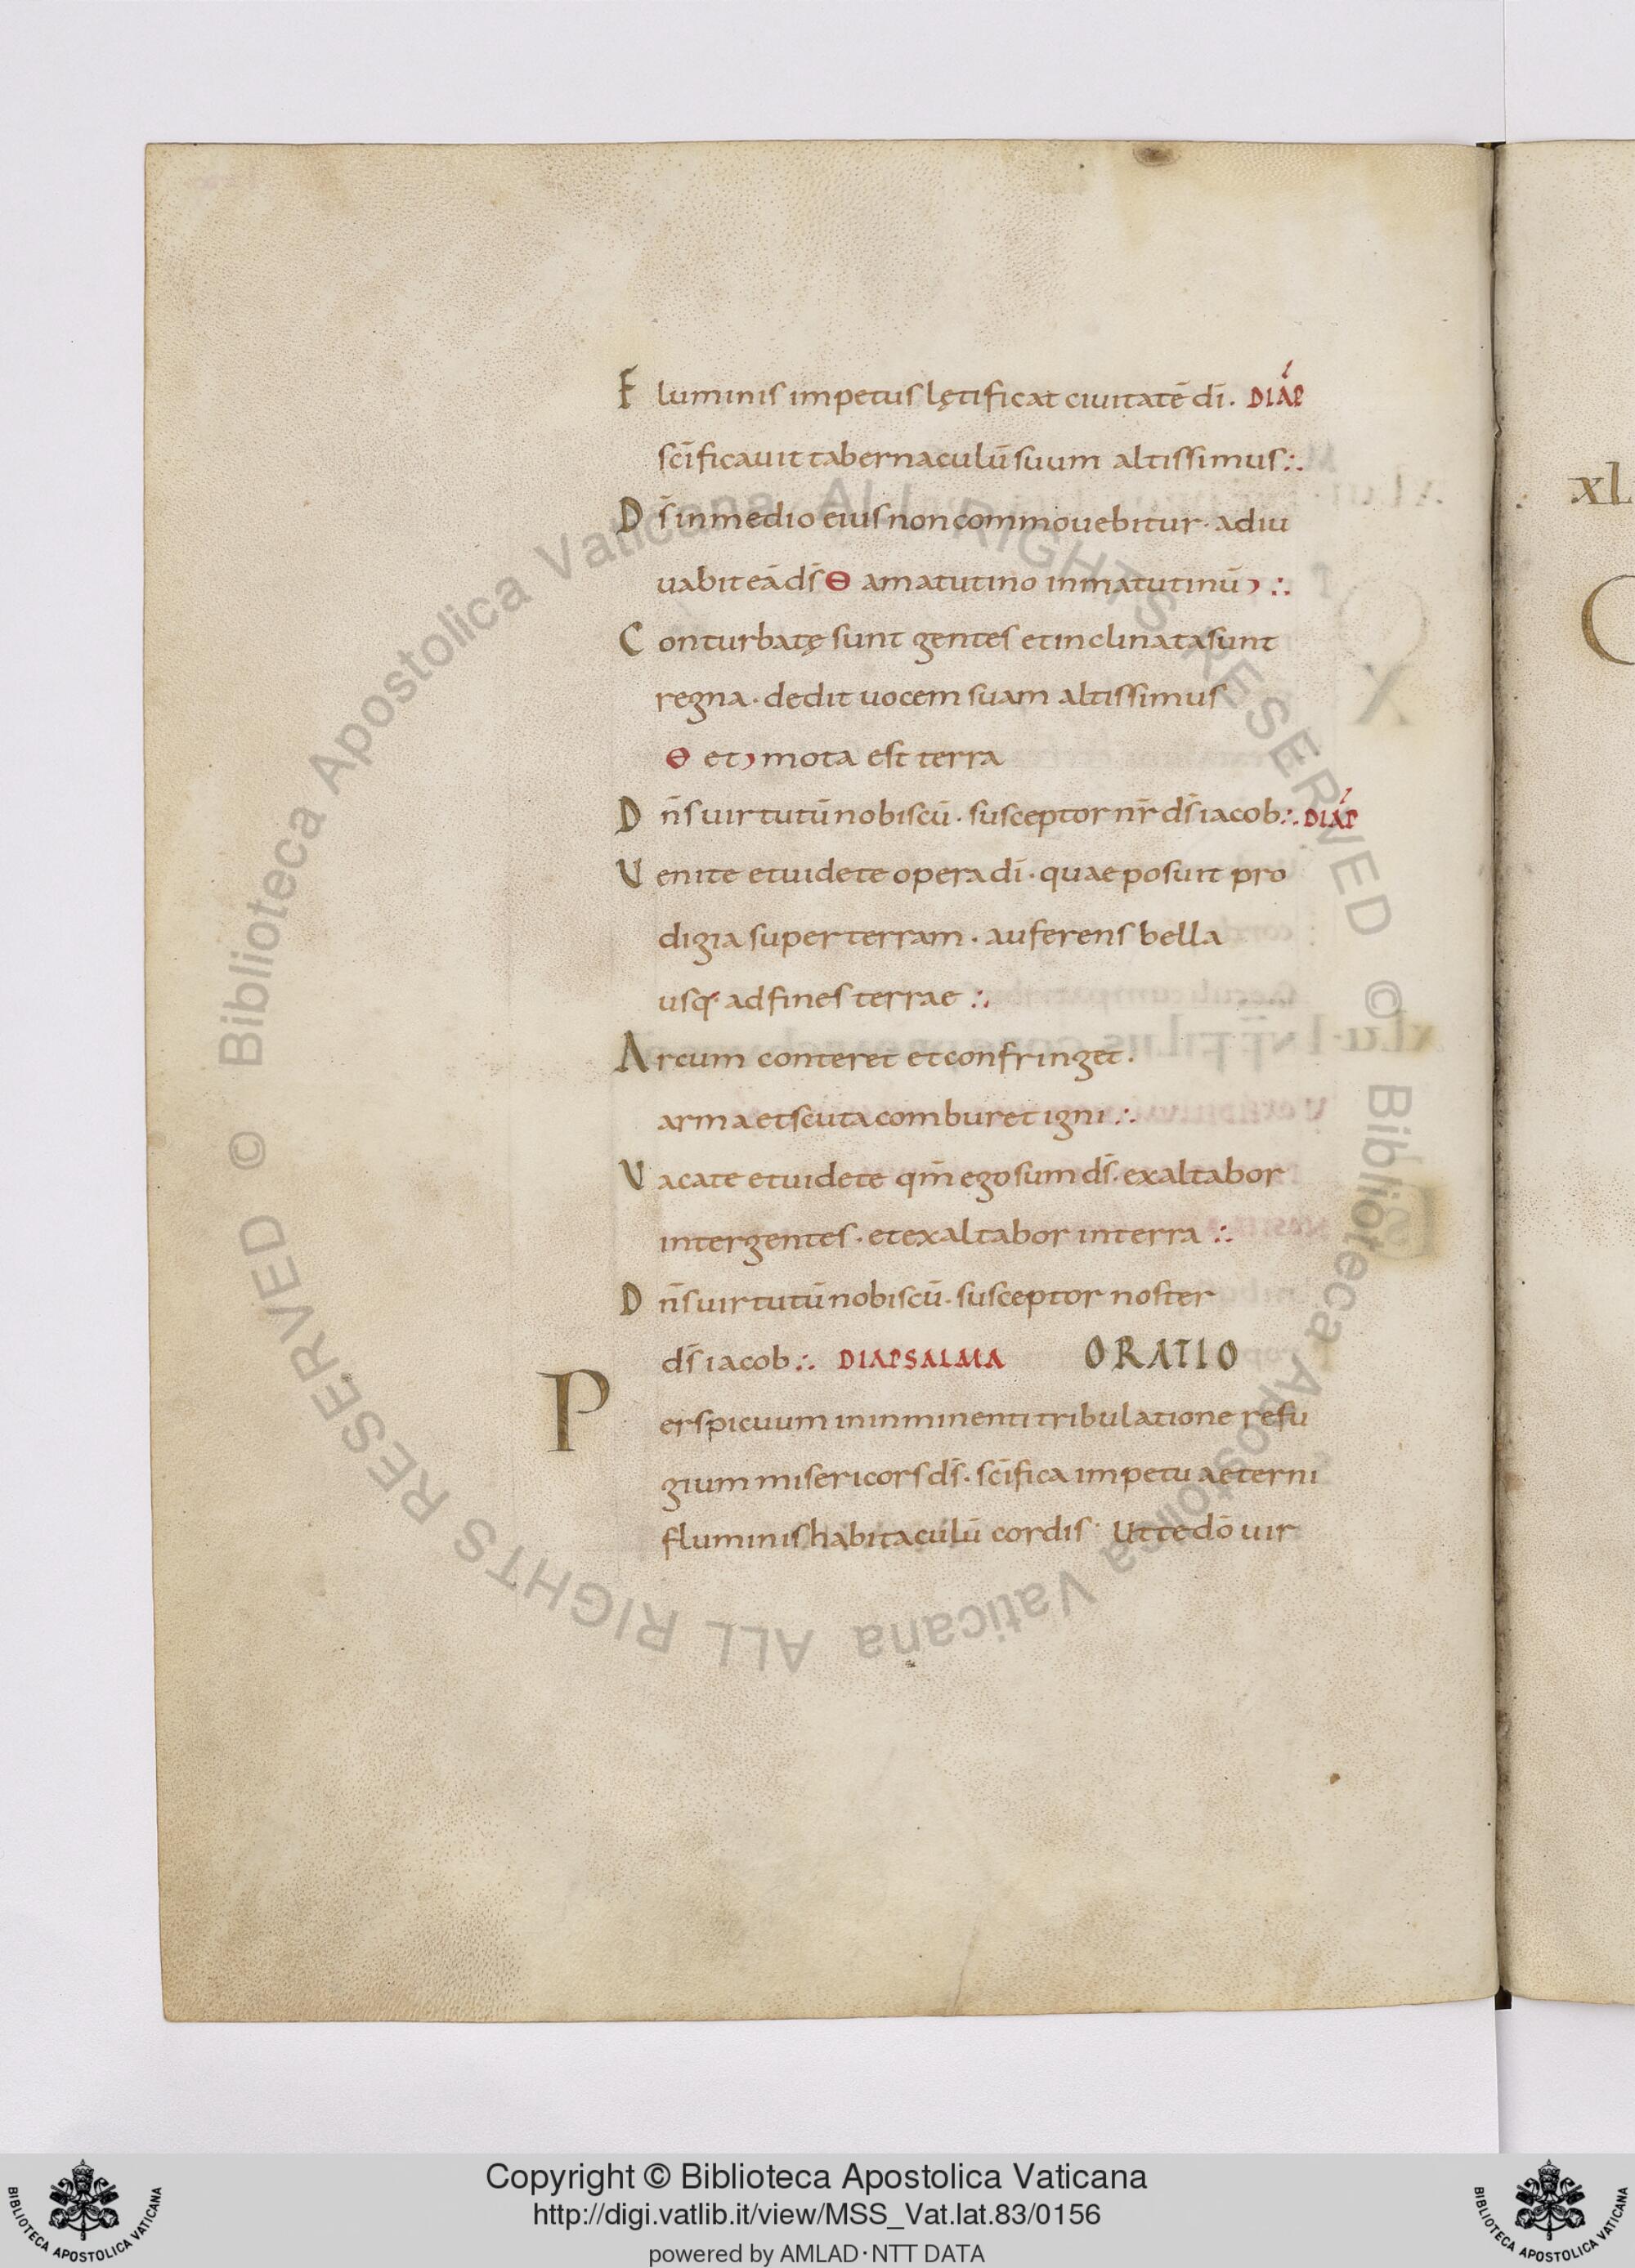 Fluminis impetus lętificat ciuitatē dī · DIAṔ
sc̄ificauit tabernaculū suum altissimus ∴
Ds̄ in medio eius non commouebitur · adiu
uabit eā ds̄ Θ a matutino in matutinū) ∴
Conturbatę sunt gentes et inclinata sunt
regna · dedit uocem suam altissimus
Θ et) mota est terra
Dn̄s uirtutū nobiscū · susceptor nr̄ ds̄ iacob ∴ DIAṔ
Venite et uidete opera dī · quae posuit pro
digia super terram · auferens bella
usq· ad fines terrae ∴
Arcum conteret et confringet ·
arma et scuta comburet igni ∴
Vacate et uidete qm̄ ego sum ds̄ · exaltabor
inter gentes · et exaltabor in terra ∴
Dn̄s uirtutū nobiscū · susceptor noster
ds̄ iacob ∴ DIAPSALMA ORATIO
Perspicuum in inminenti tribulatione refu
gium misericors ds̄ · sc̄ifica impetu aeterni
fluminis habitaculū cordis · Ut te dō uir
xL
C
© Biblioteca Apostolica Vaticana ALL RIGHTS RESERVED © Biblioteca Apostolica Vaticana ALL RIGHTS RESERVED
Copyright © Biblioteca Apostolica Vaticana
http://digi.vatlib.it/view/MSS_Vat.lat.83/0156
powered by AMLAD·NTT DATA
BIBLIOTECA APOSTOLICA VATICANA
BIBLIOTECA APOSTOLICA VATICANA